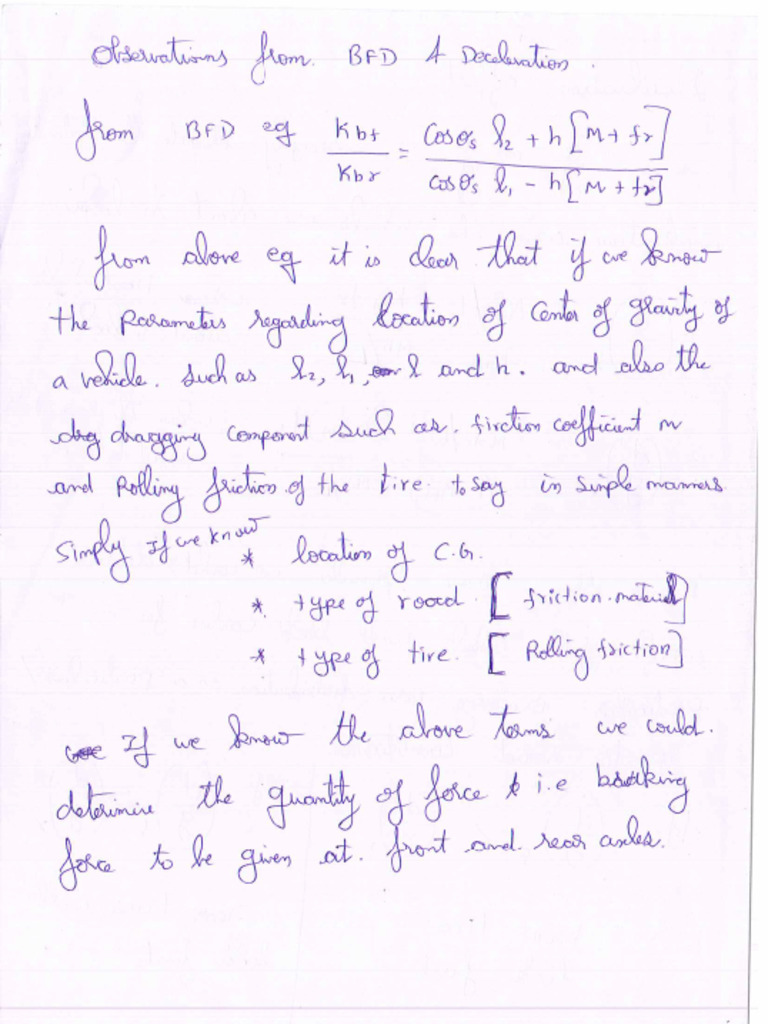 Observations from BFD & Deceleration.
from BFD eq Kbf / Kbr = Cosθs l2 + h [M + fr] / cosθs l1 - h [M + fr]
from above eq it is clear that if we know
the parameters regarding location of center of gravity of
a vehicle. Such as l2, l1, l and h. and also the
dragging component such as. firction coefficient m
and Rolling friction of the tire to say in simple manners
Simply If we know
* location of C.G.
* type of road [friction material]
* type of tire. [Rolling friction]
If we know the above terms we could.
determine the quantity of force i.e braking
force to be given at. front and rear axles.